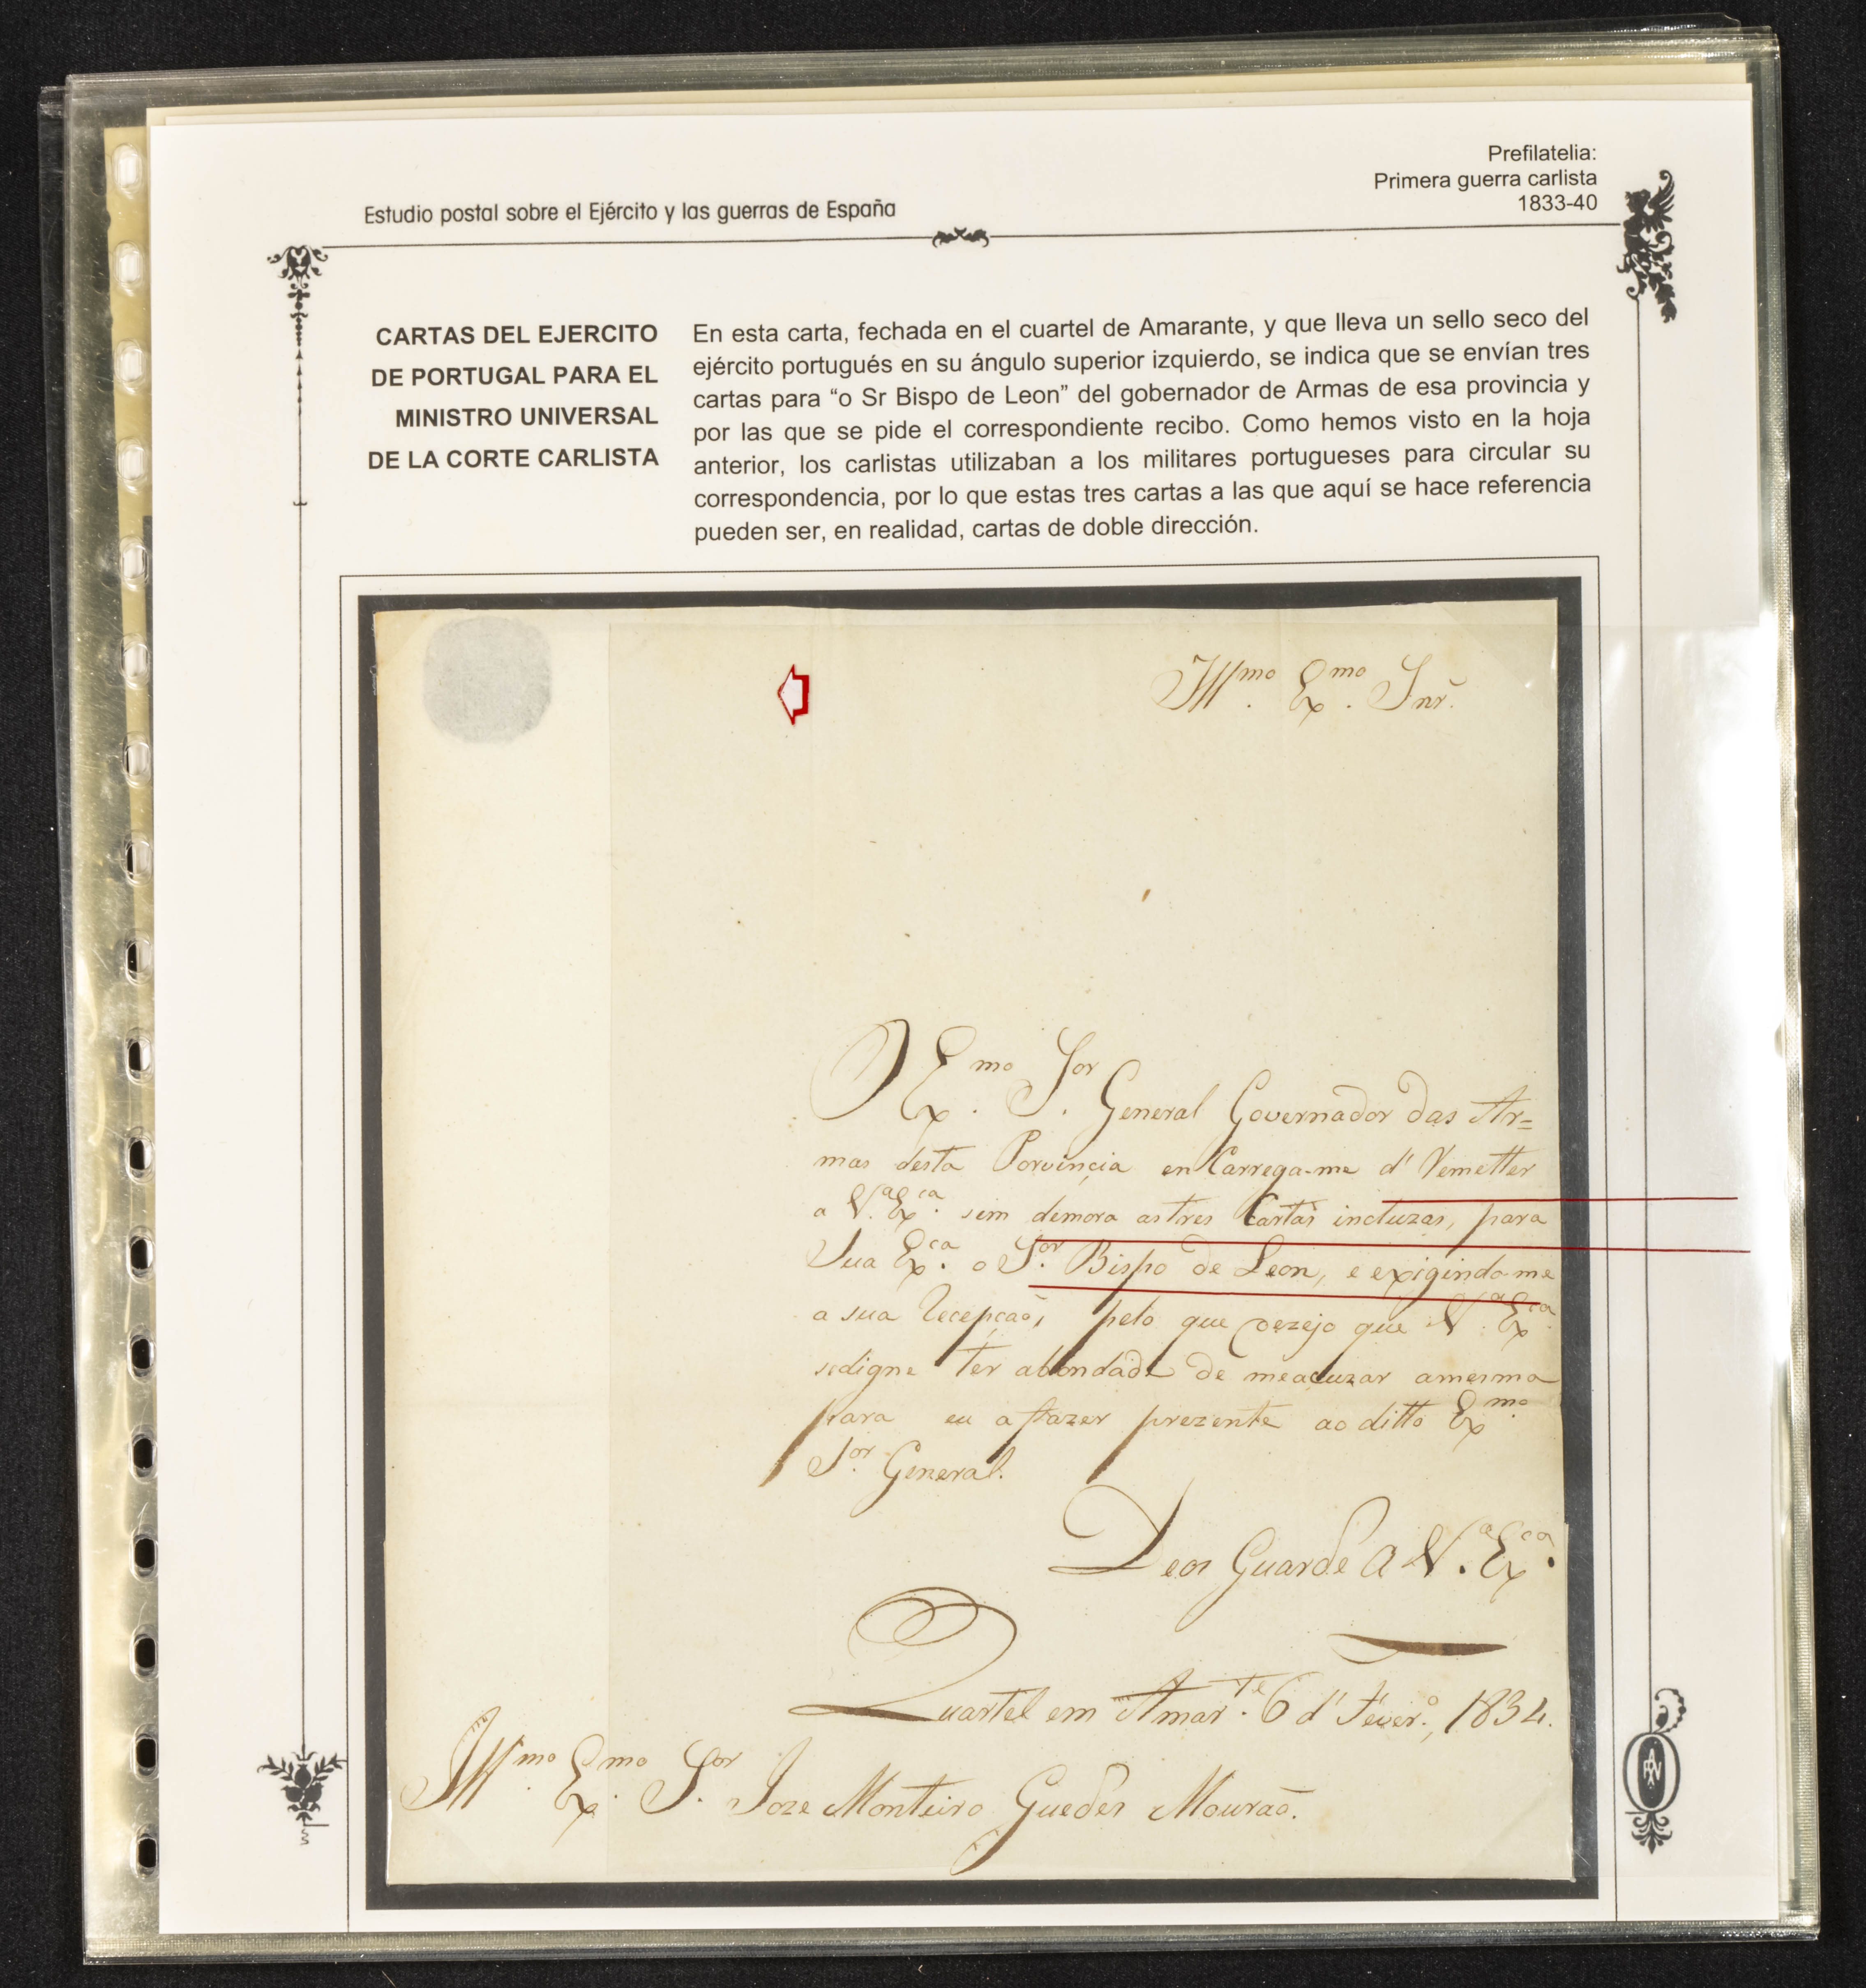 Prefilatelia:
Primera guerra carlista
1833-40
Estudio postal sobre el Ejército y las guerras de España
CARTAS DEL EJERCITO
DE PORTUGAL PARA EL
MINISTRO UNIVERSAL
DE LA CORTE CARLISTA
En esta carta, fechada en el cuartel de Amarante, y que lleva un sello seco del
ejército portugués en su ángulo superior izquierdo, se indica que se envían tres
cartas para “o Sr Bispo de Leon” del gobernador de Armas de esa provincia y
por las que se pide el correspondiente recibo. Como hemos visto en la hoja
anterior, los carlistas utilizaban a los militares portugueses para circular su
correspondencia, por lo que estas tres cartas a las que aquí se hace referencia
pueden ser, en realidad, cartas de doble dirección.
Illmo. Exmo. Snr.
O Exmo. Sor. General Governador das Ar=
mas desta Porvinçia en Carrega-me d' Remetter
a V.ª Exca. sem demora as tres Cartas incluzas, para
Sua Exca. o Sor. Bispo de Leon, e exigindo-me
a sua Recepçaõ, pelo que dezejo que V.ª Exca.
sedigne ter abondade de meacuzar amesma
para eu a fazer prezente ao ditto Exmo.
Sor. General.
Deos Guarde a V.ª Exca.
Quartel em Amar.te 6 d' Fever.º, 1834.
Illmo. Exmo. Sor. Joze Monteiro Guedes Mouraõ.